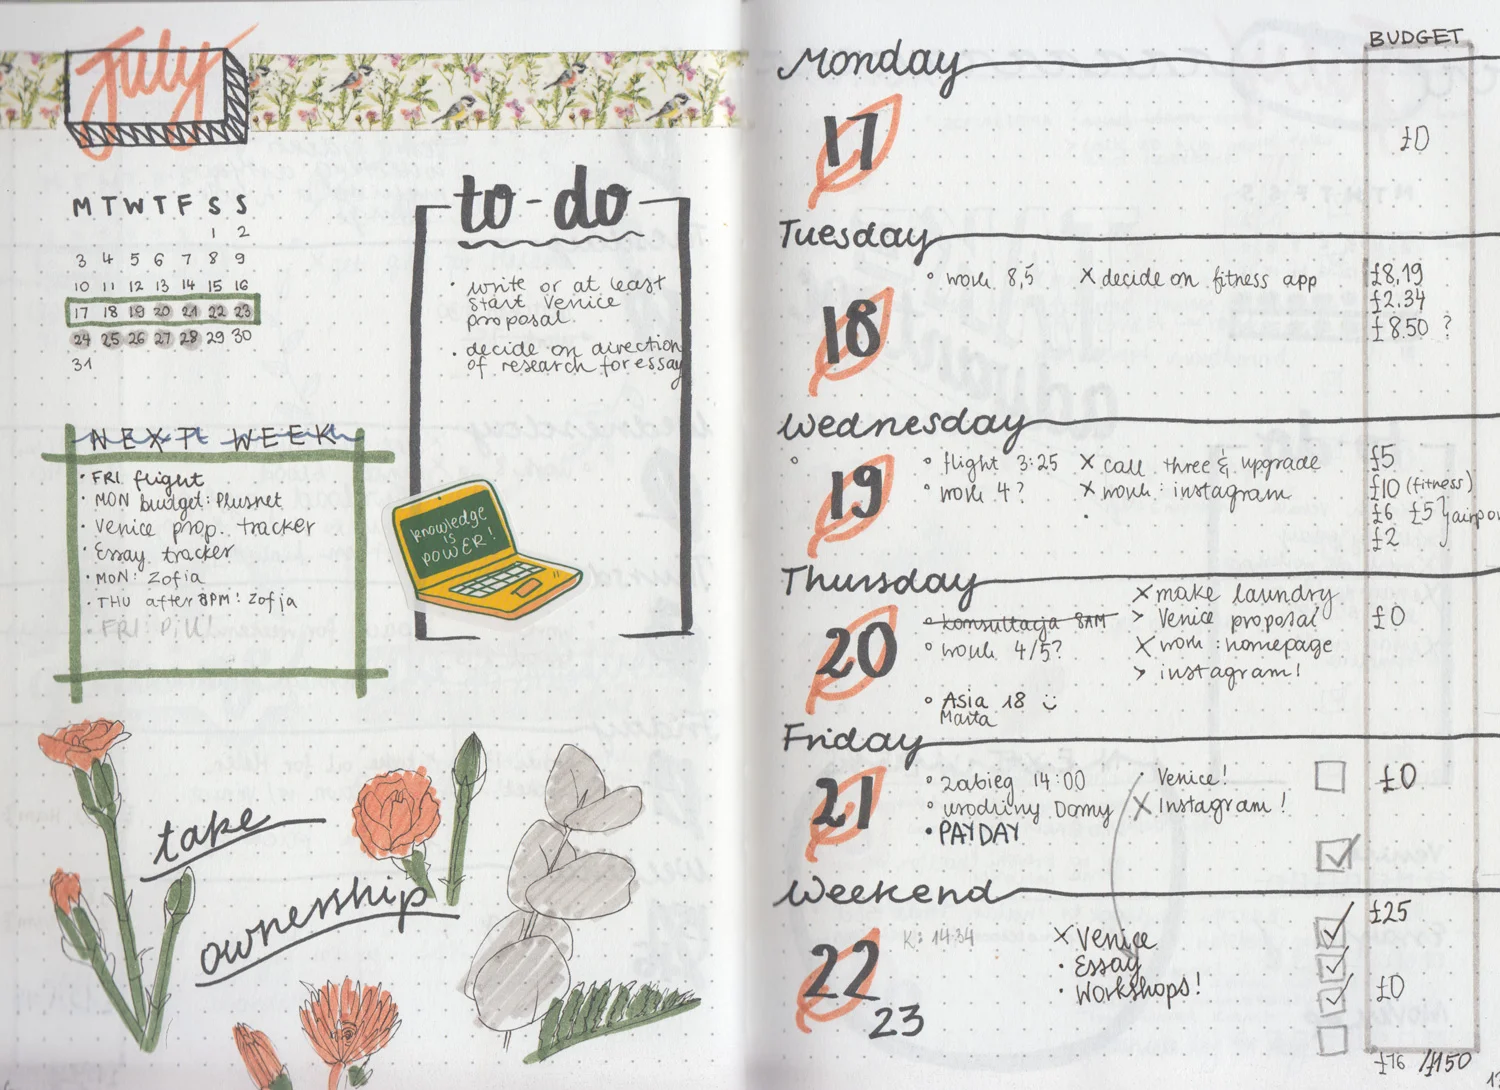 July
M T W T F S S
1 2
3 4 5 6 7 8 9
10 11 12 13 14 15 16
17 18 19 20 21 22 23
24 25 26 27 28 29 30
31
to-do
· write or at least
start Venice
proposal.
· decide on direction
of research for essay
NEXT WEEK
· FRI flight
· MON budget: Plusnet
· Venice prop. tracker
· Essay tracker
· MON: Zofia
· THU after 8PM: Zofja
· FRI: PiLL!
knowledge
is
POWER!
take
ownership
BUDGET
Monday
17
£0
Tuesday
18
° work 8,5 X decide on fitness app
£8,19
£2.34
£8.50 ?
Wednesday
19
° flight 3:25 X call three & upgrade
° work 4? X work: instagram
£5
£10 (fitness)
£6 £5
£2
Thursday
20
° konsultacja 8AM
° work 4/5?
° Asia 18
Marta
X make laundry
> Venice proposal
X work: homepage
> instagram!
£0
Friday
21
° zabieg 14:00 / Venice!
° urodziny Domy X Instagram!
• PAYDAY
£0
Weekend
22
23
K: 14:34
X Venice
· Essay
· Workshops!
£25
£0
£76 /£150